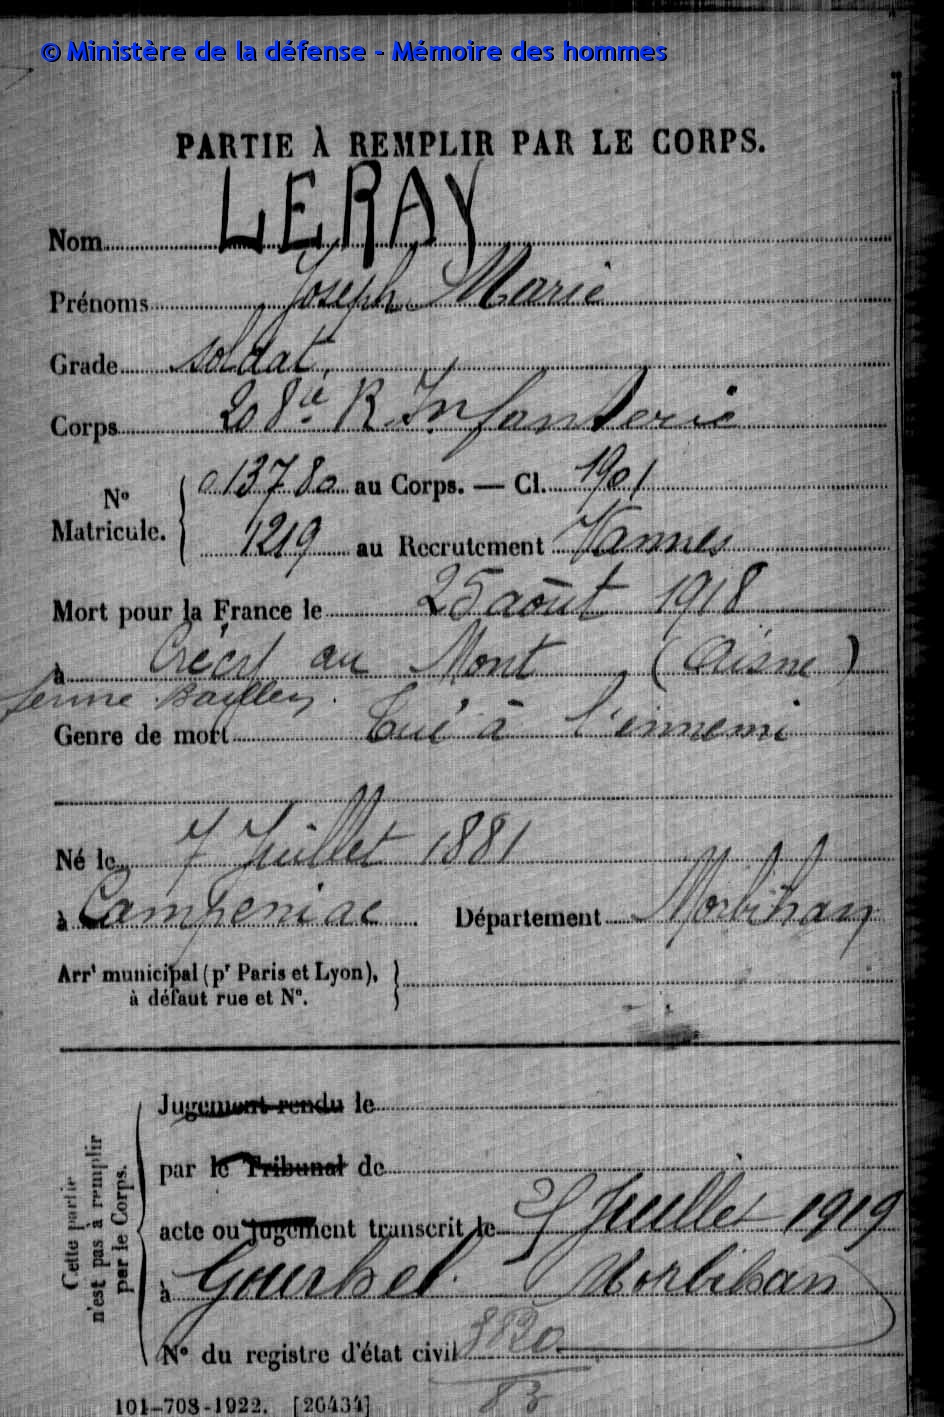 © Ministère de la défense - Mémoire des hommes
PARTIE À REMPLIR PAR LE CORPS.
Nom LERAY
Prénoms Joseph Marie
Grade soldat
Corps 208e R. Infanterie
No Matricule.
013780 au Corps. — Cl. 1901
1219 au Recrutement Vannes
Mort pour la France le 25 août 1918
à Crécy au Mont (Aisne)
ferme
Genre de mort Tué à l'ennemi
Né le 7 Juillet 1881
à Campeniac Département Morbihan
Arrt municipal (pr Paris et Lyon),
à défaut rue et No.
Cette partie
n'est pas à remplir
par le Corps.
Jugement rendu le
par le Tribunal de
acte ou jugement transcrit le Juillet 1919
à Gourhel Morbihan
No du registre d'état civil
101-708-1922. [26434]